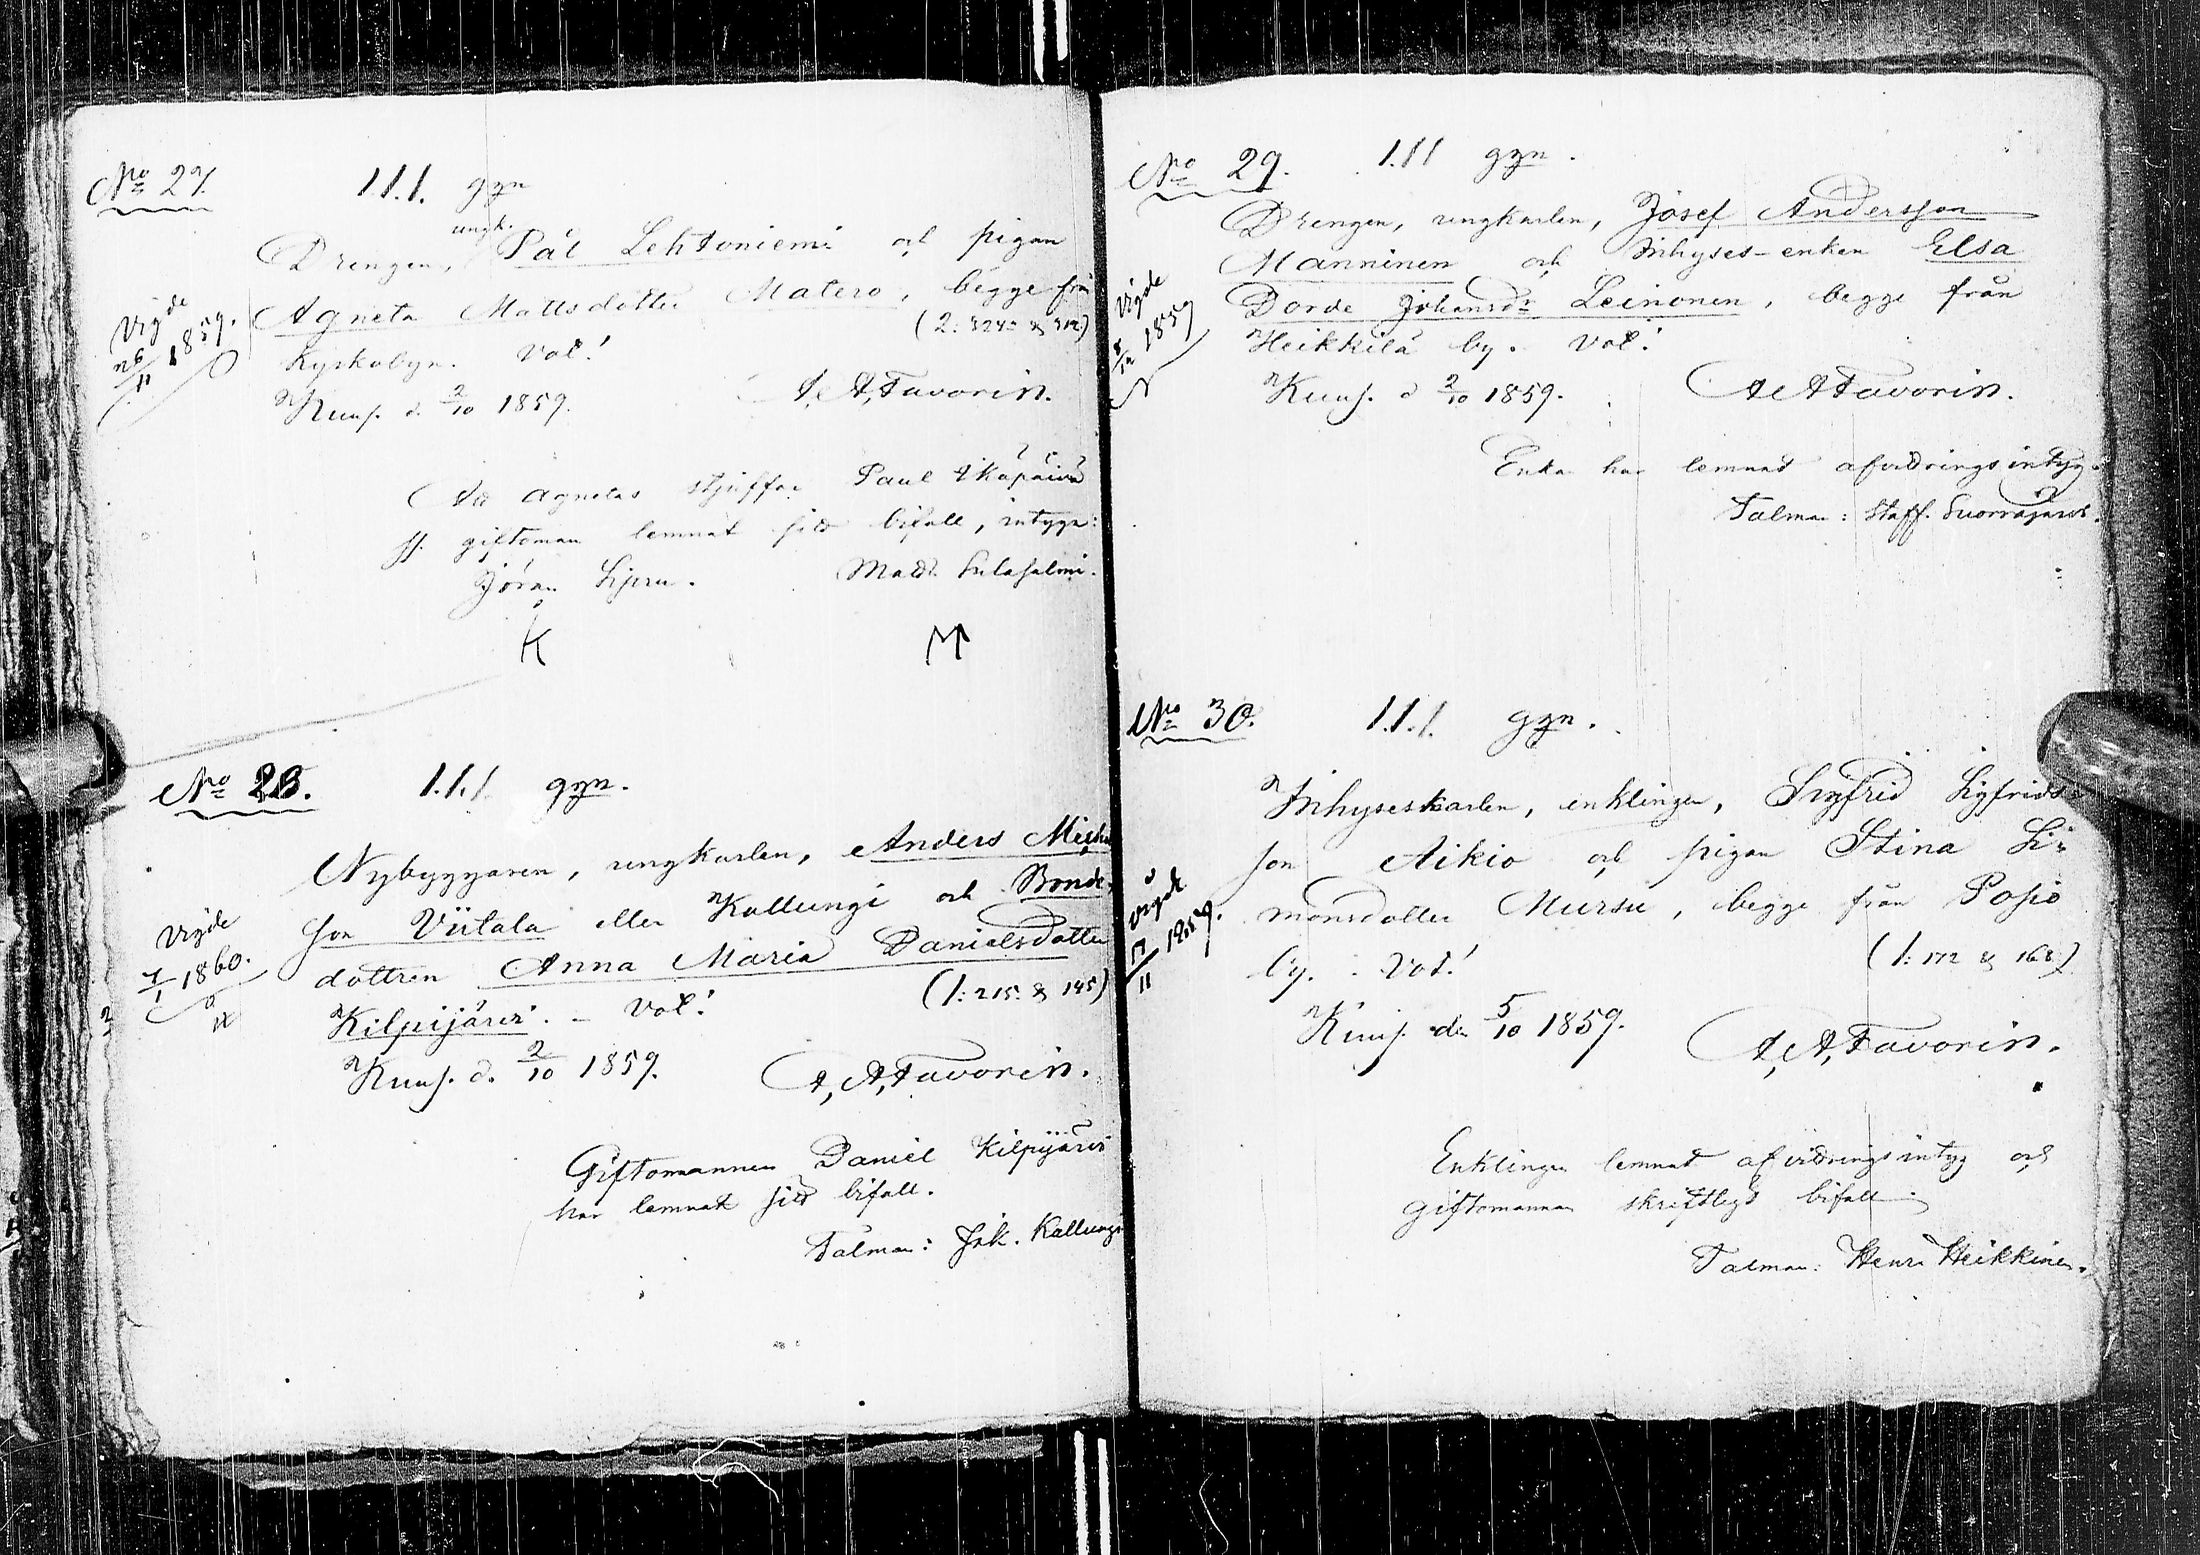 No 27. 1.1.1. ggn
Drengen, ungk. Pål Lehtoniemi och pigan
Agneta Mattsdotter Matero, begge från
(2: 324 & 312)
Kyrkobyn. Vol!
Kuus. d. 2/10 1859. A. A. Favorin.
Vigde
26/11 1859.
Att Agnetas styffar Paul Ikäpäivä
ss. giftoman lemnat sitt bifall, intyga:
Jöran Sipru. Matts Sulasalmi.
K M
No 28. 1.1.1. ggn.
Nybyggaren, ungkarlen, Anders Michels
son Viitala eller Kallungi och Bonde-
dottren Anna Maria Danielsdotter
(1: 215. & 145)
Kilpijärvi. – Vol!
Kuus. d. 2/10 1859. A. A. Favorin.
Vigde
1/1 1860.
Giftomannen Daniel Kilpijärvi
har lemnat sitt bifall.
Talman: Joh. Kallungi
No 29. 1.1.1 ggn.
Drengen, ungkarlen, Josef Andersson
Manninen och Inhyses-enkan Elsa
Dorde Johansdr Leinonen, begge från
Heikkilä by. Vol!
Kuus. d 2/10 1859. A A Favorin.
Vigde
1859
Enkan har lemnat afvittringsintyg.
Talman: Staff. Suorajärvi.
No 30. 1.1.1. ggn.
Inhyseskarlen, enklingen, Sigfrid Sigfrids-
son Aikio och pigan Stina Si-
monsdotter Mursu, begge från Posio
(1: 172 & 168)
by. – Vol!
Kuus. den 5/10 1859. A. A. Favorin.
Vigde
17/11 1859.
Enklingen lemnat afvittringsintyg och
giftomannen skriftligt bifall.
Talman: Henr. Heikkinen.